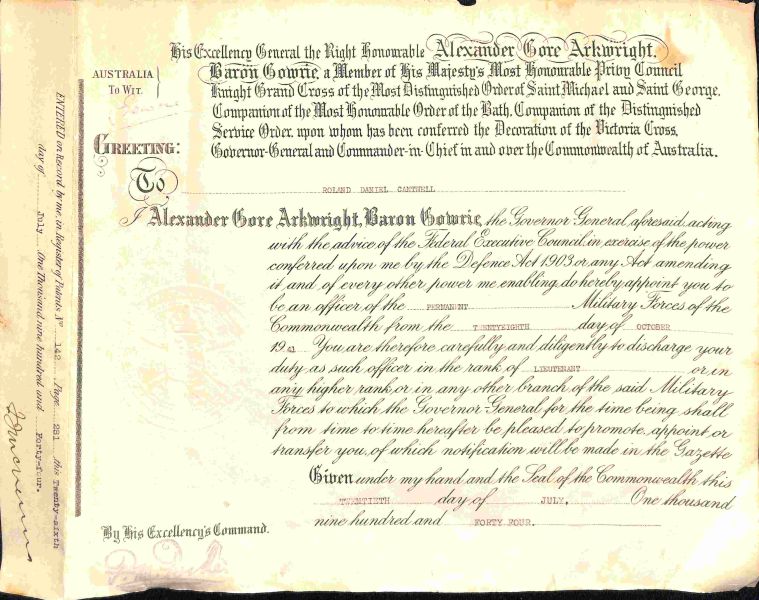 His Excellency General the Right Honourable Alexander Gore Arkwright,
Baron Gowrie, a Member of His Majesty's Most Honourable Privy Council
Knight Grand Cross of the Most Distinguished Order of Saint Michael and Saint George,
Companion of the Most Honourable Order of the Bath, Companion of the Distinguished
Service Order, upon whom has been conferred the Decoration of the Victoria Cross,
Governor-General and Commander-in-Chief in and over the Commonwealth of Australia.
AUSTRALIA
TO WIT.
Gowrie
GREETING:
To ROLAND DANIEL CANTWELL
I Alexander Gore Arkwright, Baron Gowrie, the Governor General, aforesaid, acting
with the advice of the Federal Executive Council, in exercise of the power
conferred upon me by the Defence Act 1903 or any Act amending
it, and of every other power me enabling, do hereby appoint you to
be an officer of the PERMANENT Military Forces of the
Commonwealth from the TWENTYEIGHTH day of OCTOBER
1941 You are therefore carefully and diligently to discharge your
duty as such officer in the rank of LIEUTENANT or in
any higher rank or in any other branch of the said Military
Forces to which the Governor-General for the time being shall
from time to time hereafter be pleased to promote, appoint or
transfer you, of which notification will be made in the Gazette
Given under my hand and the Seal of the Commonwealth this
TWENTIETH day of JULY, One thousand
nine hundred and FORTY FOUR.
By His Excellency's Command.
ENTERED on Record by me, in Register of Patents No 142 Page 281 this Twenty-sixth
day of July One Thousand nine hundred and Forty-four.